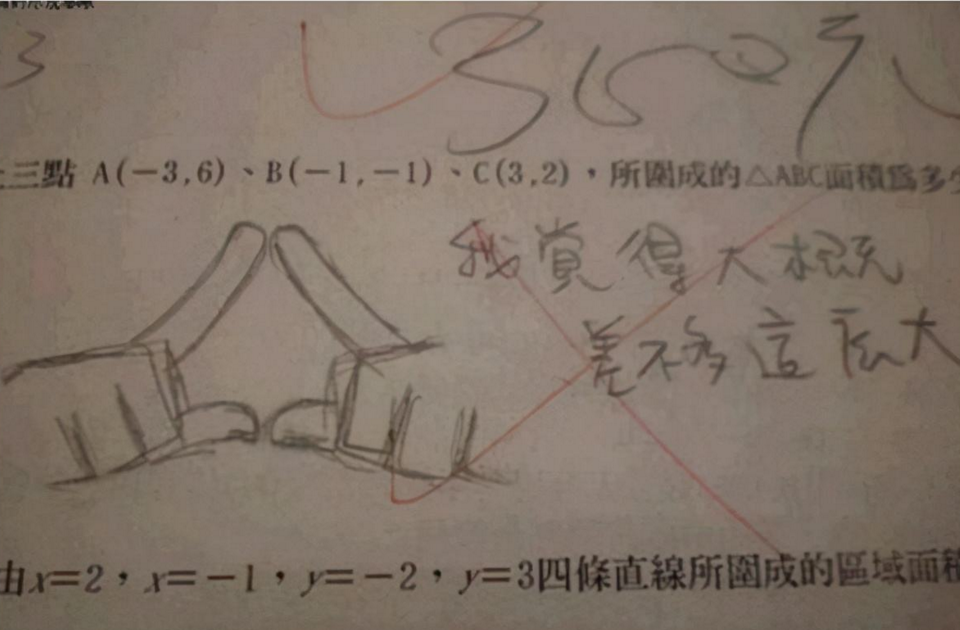 3 3 50元
三點 A(-3,6)、B(-1,-1)、C(3,2),所圍成的△ABC面積爲多
我覺得大概
差不多這庅大
由x=2,x=-1,y=-2,y=3四條直線所圍成的區域面積